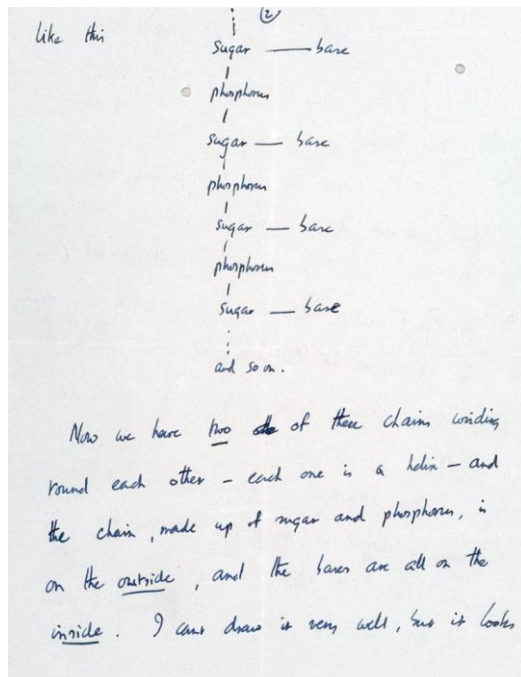 2
like this
Sugar — base
phosphorus
sugar — base
phosphorus
sugar — base
phosphorus
sugar — base
and so on.
Now we have two of these chains winding
round each other – each one is a helix – and
the chain, made up of sugar and phosphorus, is
on the outside, and the bases are all on the
inside. I can't draw it very well, but it looks